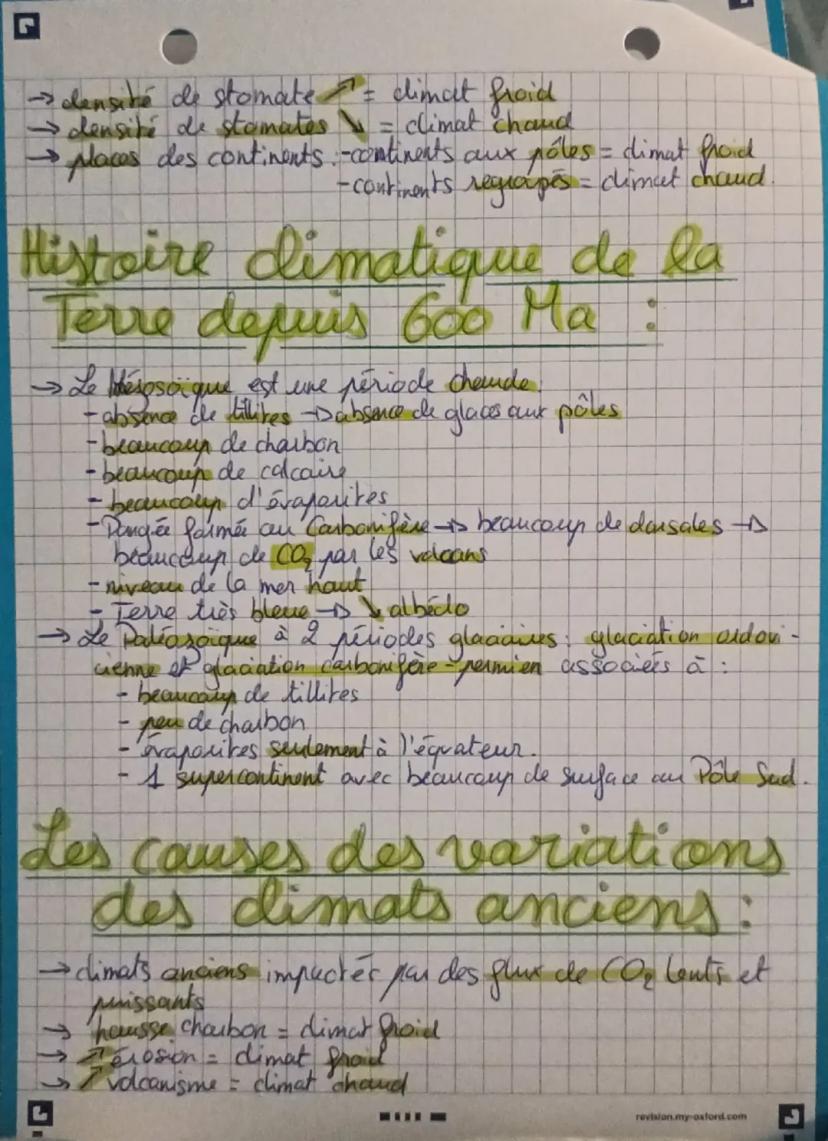 → densité de stomate ↗ = climat froid
→ densité de stomates ↘ = climat chaud
→ places des continents : -continents aux pôles = climat froid
-continents regroupés = climat chaud.
Histoire climatique de la
Terre depuis 600 Ma :
→ Le Mésosoïque est une période chaude.
- absence de tillites → absence de glaces aux pôles
- beaucoup de charbon
- beaucoup de calcaire
- beaucoup d'évaporites
- Pangée formée au Carbonifère → beaucoup de dorsales →
beaucoup de CO₂ par les volcans
- niveau de la mer haut
- Terre très bleue → ↘ albédo
→ Le Paléozoïque à 2 périodes glaciaires : glaciation ordovi-
cienne et glaciation carbonifère-permien associées à :
- beaucoup de tillites
- peu de charbon
- évaporites seulement à l'équateur.
- 1 supercontinent avec beaucoup de surface au Pôle Sud.
Les causes des variations
des climats anciens :
→ climats anciens impactés par des flux de CO₂ lents et
puissants
→ hausse charbon = climat froid
→ ↗ érosion = climat froid
→ ↗ volcanisme = climat chaud
revision.my-oxford.com